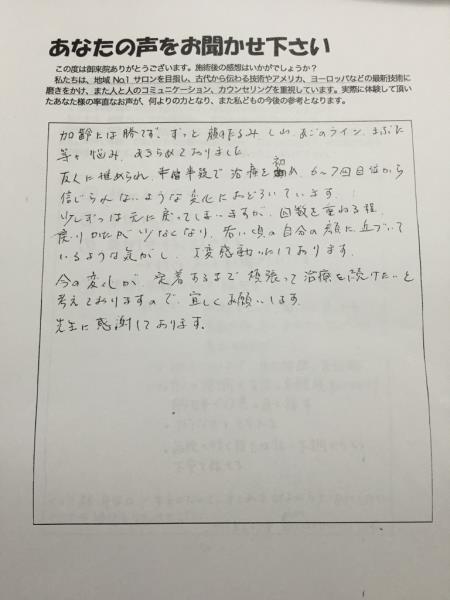 あなたの声をお聞かせ下さい
この度は御来院ありがとうございます。施術後の感想はいかがでしょうか？
私たちは、地域 No.1 サロンを目指し、古代から伝わる技術やアメリカ、ヨーロッパなどの最新技術に
磨きをかけ、また人と人のコミュニケーション、カウンセリングを重視しています。実際に体験して頂い
たあなた様の率直なお声が、何よりの力となり、また私どもの今後の参考となります。
加齢には勝てず、ずっと顔のたるみ、しわ、あごのライン、まぶた
等々悩み、あきらめておりました。
友人に推められ、半信半疑で治療を初め、6〜7回目位から
信じられないような変化におどろいています。
少しずつは元に戻ってしまいますが、回数を重ねる程、
戻りかたが少なくなり、若い頃の自分の顔に近づいて
いるような気がし、大変感動いたしております。
今の変化が、定着するまで頑張って治療を続けたいと
考えておりますので、宜しくお願いします。
先生に感謝しております。